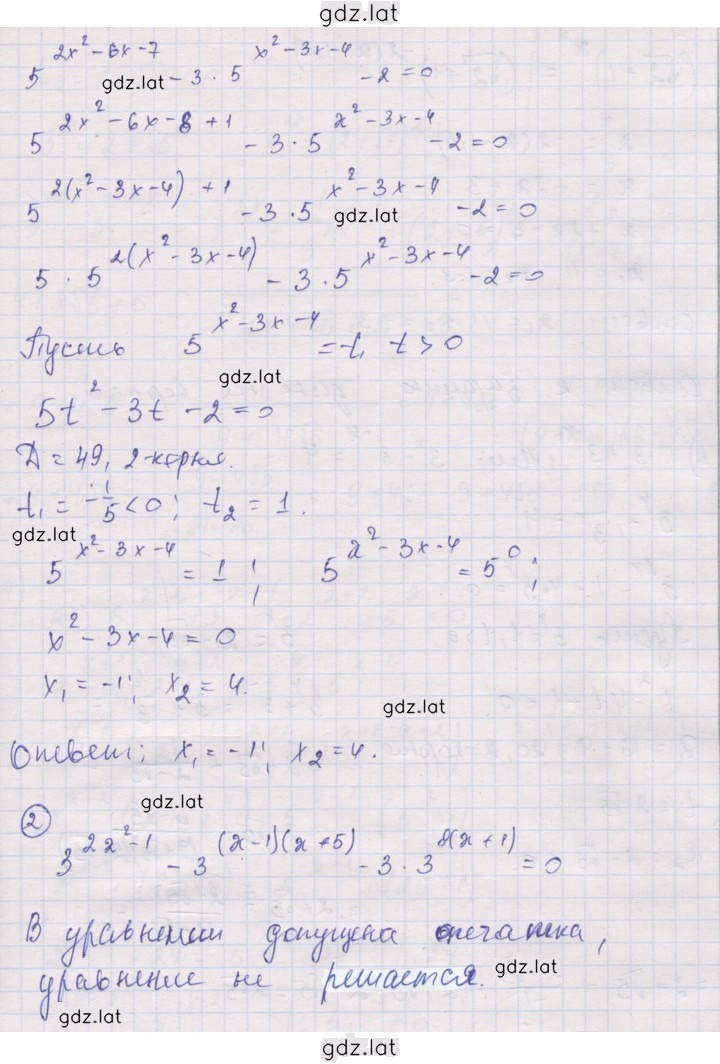 gdz.lat
5^(2x²-6x-7) - 3·5^(x²-3x-4) - 2 = 0
gdz.lat
5^(2x²-6x-8+1) - 3·5^(x²-3x-4) - 2 = 0
5^(2(x²-3x-4)+1) - 3·5^(x²-3x-4) - 2 = 0
gdz.lat
5·5^(2(x²-3x-4)) - 3·5^(x²-3x-4) - 2 = 0
Пусть 5^(x²-3x-4) = t, t > 0
gdz.lat
5t² - 3t - 2 = 0
Д = 49, 2 корня.
t₁ = -1/5 < 0; t₂ = 1.
gdz.lat
5^(x²-3x-4) = 1; 5^(x²-3x-4) = 5⁰;
x² - 3x - 4 = 0
x₁ = -1; x₂ = 4.
gdz.lat
Ответ: x₁ = -1; x₂ = 4.
gdz.lat
② 3^(2x²-1) - 3^((x-1)(x+5)) - 3·3^(8(x+1)) = 0
В уравнении допущена опечатка,
уравнение не решается.
gdz.lat
gdz.lat
gdz.lat